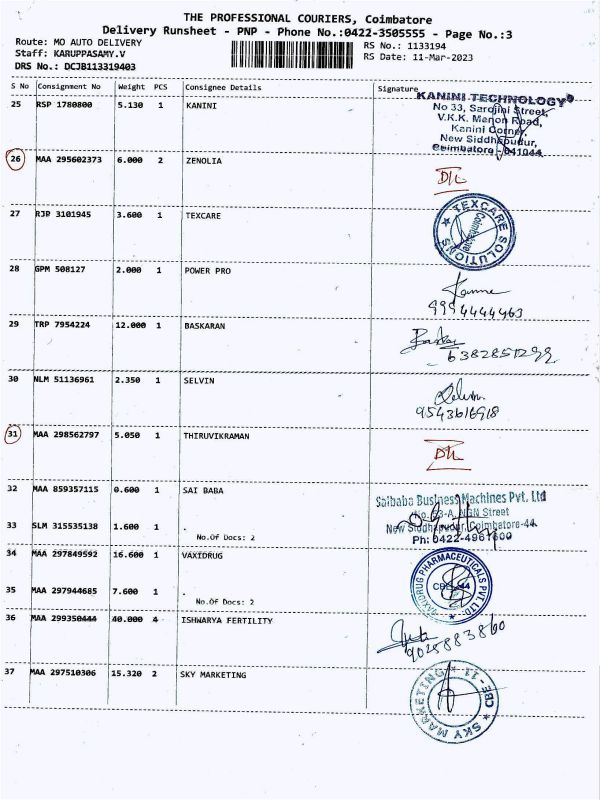 THE PROFESSIONAL COURIERS, Coimbatore
Delivery Runsheet - PNP - Phone No.:0422-3505555 - Page No.:3
Route: MO AUTO DELIVERY
RS No.: 1133194
Staff: KARUPPASAMY.V
RS Date: 11-Mar-2023
DRS No.: DCJB113319403
S No Consignment No Weight PCS Consignee Details Signature
25 RSP 1780800 5.130 1 KANINI
KANINI TECHNOLOGY
No 33, Sarojini Street,
V.K.K. Menon Road,
Kanini Corner,
New Siddhapudur,
Coimbatore - 641044
26 MAA 295602373 6.000 2 ZENOLIA
27 RJP 3101945 3.600 1 TEXCARE
TEXCARE SOLUTIONS
28 GPM 508127 2.000 1 POWER PRO
9994444463
29 TRP 7954224 12.000 1 BASKARAN
6382851299
30 NLM 51136961 2.350 1 SELVIN
Selvin
9543616918
31 MAA 298562797 5.050 1 THIRUVIKRAMAN
32 MAA 859357115 0.600 1 SAI BABA
Saibaba Business Machines Pvt. Ltd
No. 53-A, NGN Street
New Siddhapudur, Coimbatore-44.
Ph: 0422-4961600
33 SLM 315535138 1.600 1 .
No.Of Docs: 2
34 MAA 297849592 16.600 1 VAXIDRUG
VAXIDRUG PHARMACEUTICALS PVT. LTD.
35 MAA 297944685 7.600 1 .
No.Of Docs: 2
36 MAA 299350444 40.000 4 ISHWARYA FERTILITY
9025883860
37 MAA 297510306 15.320 2 SKY MARKETING
SKY MARKETING CBE - 11